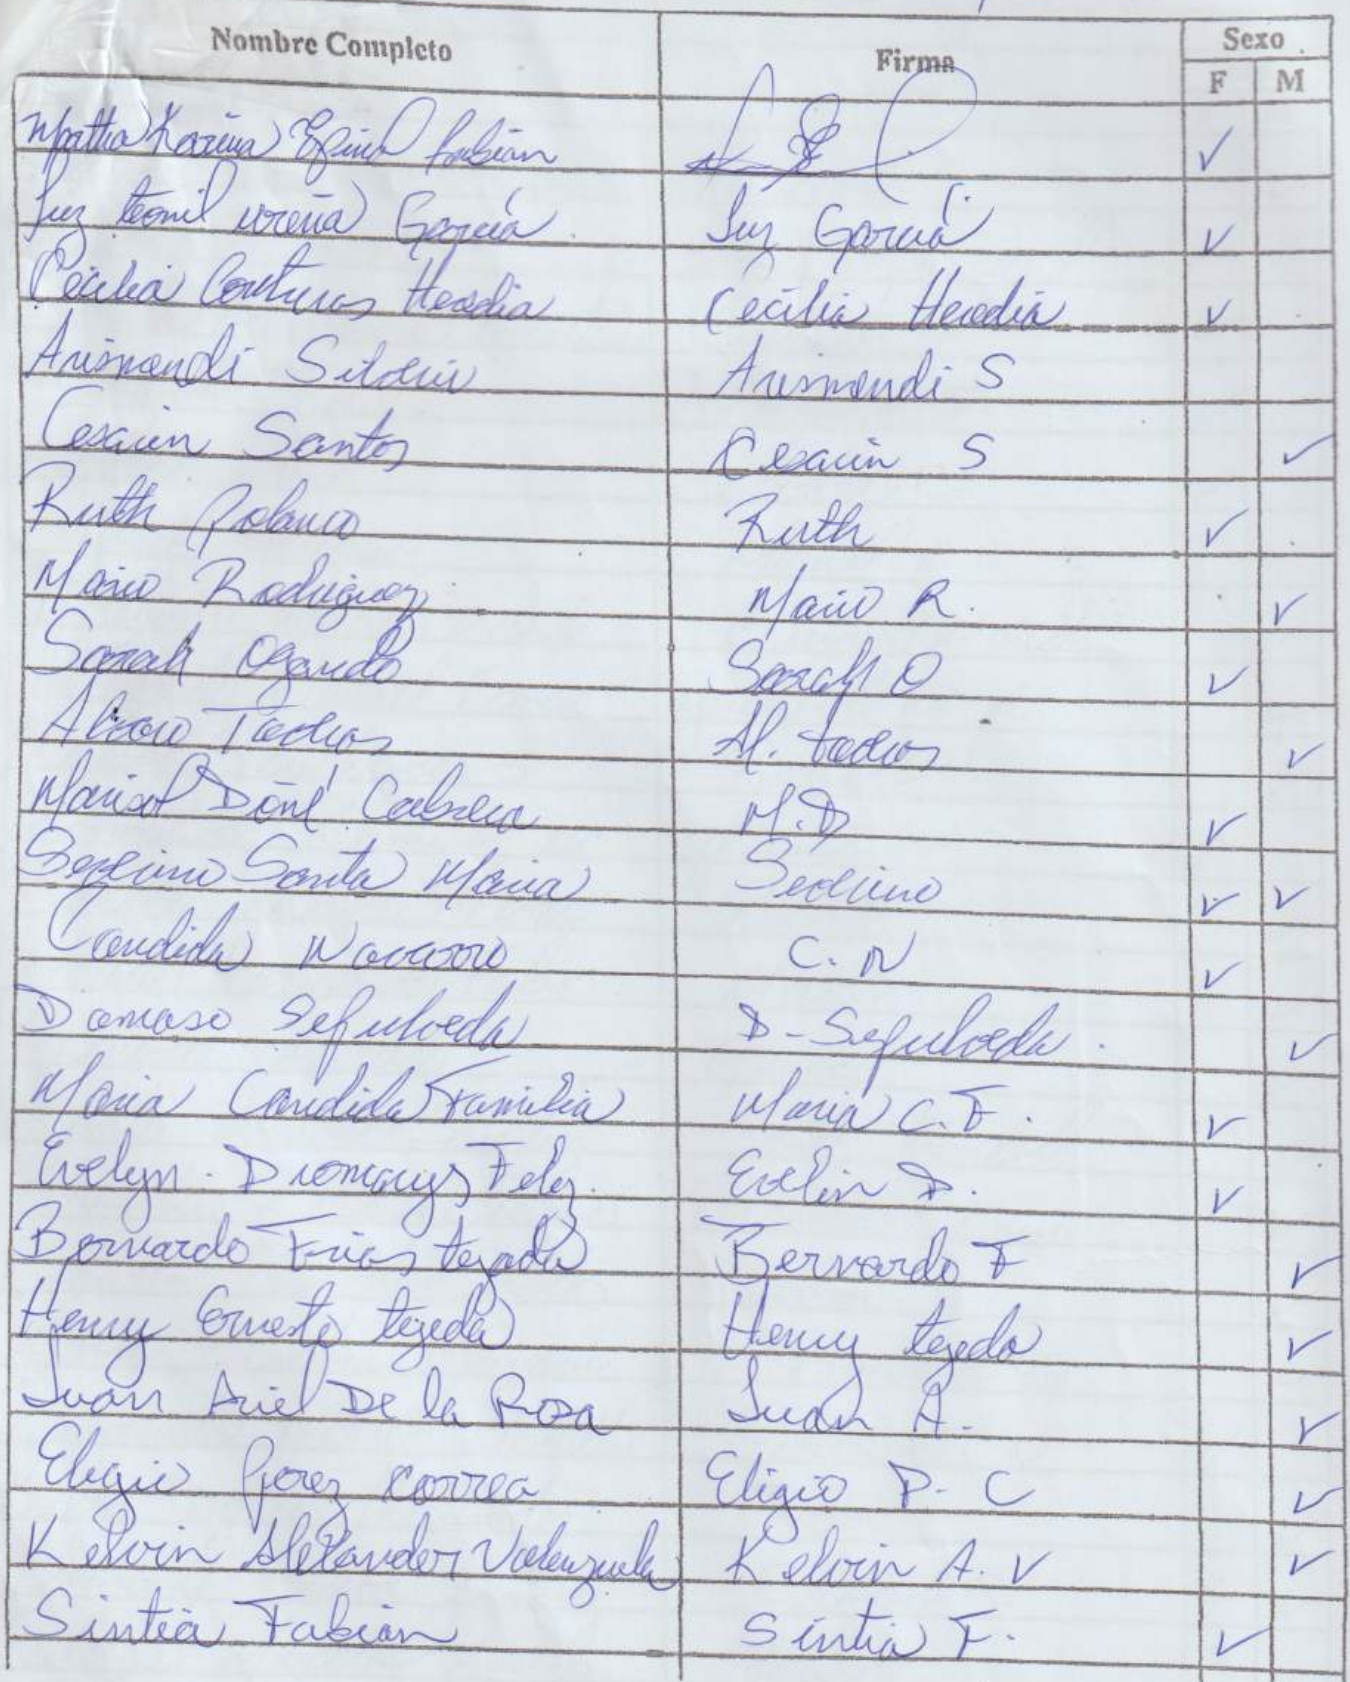 Nombre Completo Firma Sexo
F M
Martha Karina Fabian ✓
Luz ureña García Luz García ✓
Cecilia Contreras Heredia Cecilia Heredia ✓
Arismendi Arismendi S
Santos S ✓
Ruth Polanco Ruth ✓
Mario Rodriguez Mario R. ✓
Sarah Ogando Sarah O ✓
Al. ✓
Marisol Doñé Cabrera M.D ✓
Santa Maria ✓ ✓
Candida Navarro C. N ✓
Damaso Sepulveda D-Sepulveda. ✓
Maria Candida Familia Maria C. F. ✓
Evelyn. Diomarys Feliz. Evelin D. ✓
Bernardo Frias tejada Bernardo F ✓
Henry Ernesto tejeda Henry tejeda ✓
Juan Ariel De la Rosa Juan A. ✓
Eligio perez correa Eligio P. C ✓
Kelvin Alexander Valenzuela Kelvin A. V ✓
Sintia Fabian Sintia F. ✓